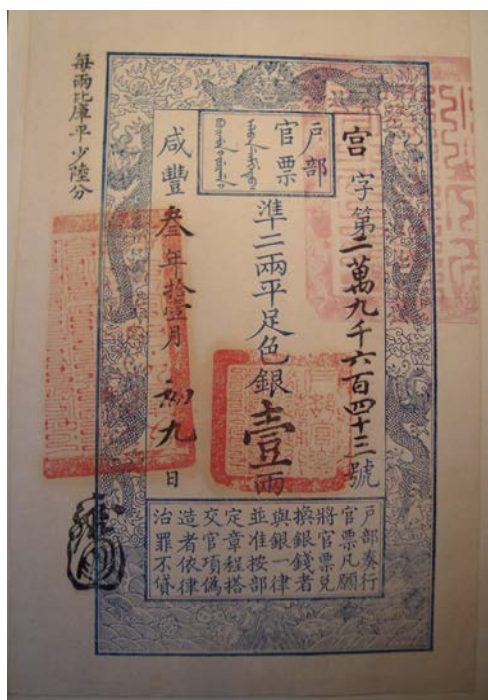 宮字第二萬九千六百四十三號
户部
官票
準二兩平足色銀壹兩
咸豐叁年拾壹月初九日
每兩比庫平少陸分
户部奏行
官票凡願
將官票兌
換銀錢者
與銀一律
並准按部
定章程搭
交官項偽
造者依律
治罪不貸